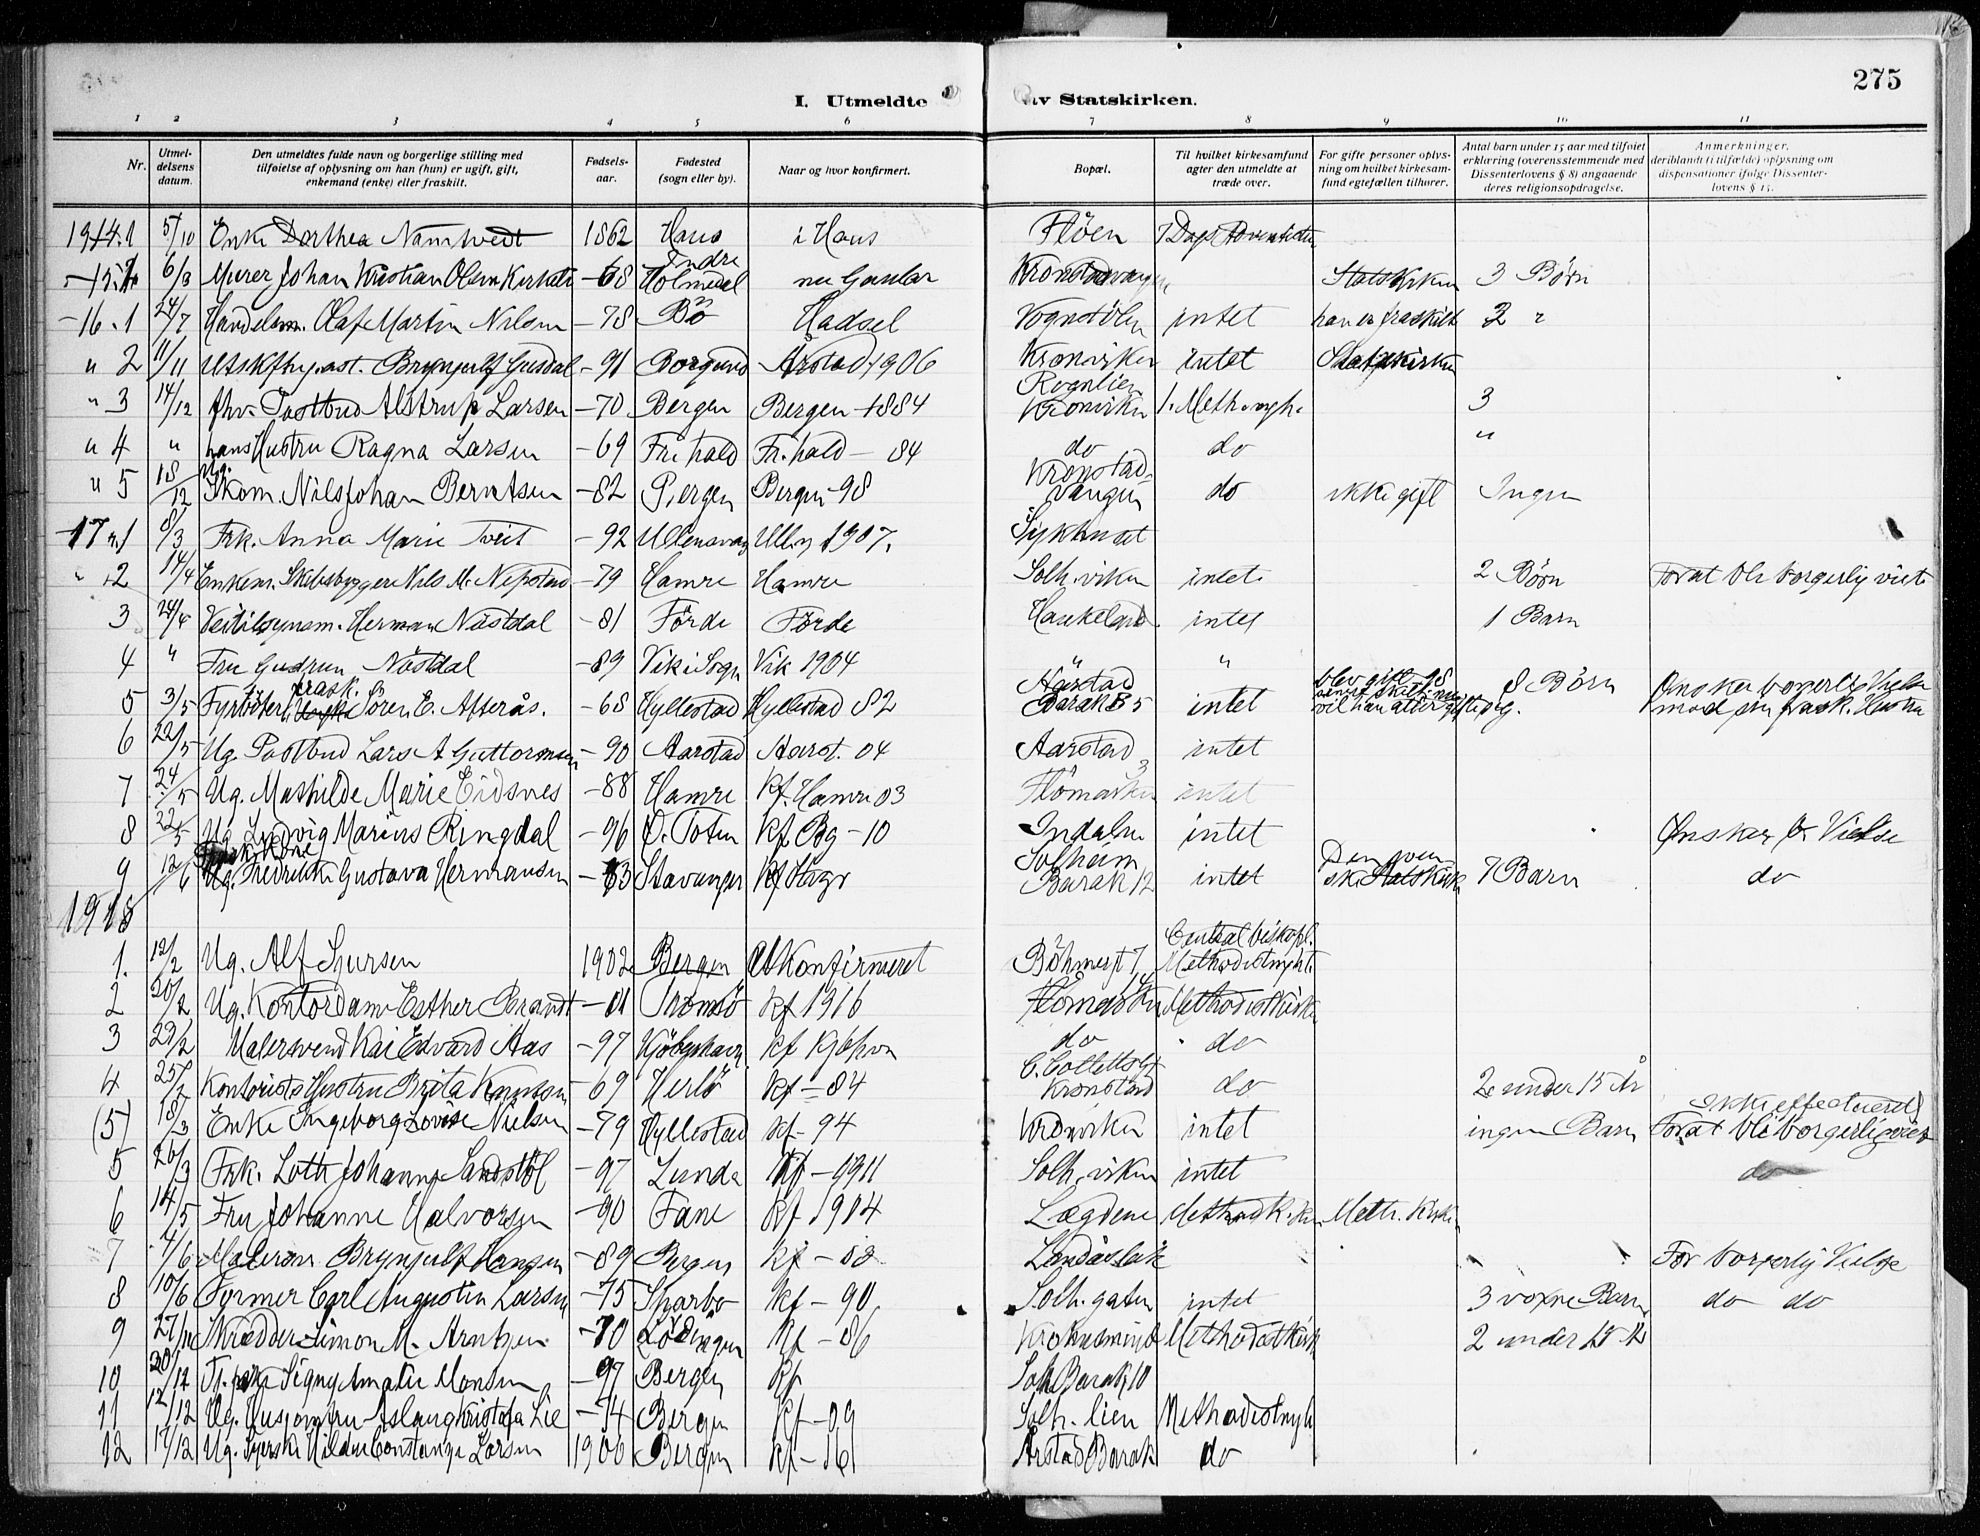 275
I. Utmeldte av Statskirken.
1 2 3 4 5 6 7 8 9 10 11
Nr. | Utmeldelsens datum. | Den utmeldtes fulde navn og borgerlige stilling med tilføielse af oplysning om han (hun) er ugift, gift, enkemand (enke) eller fraskilt. | Fødselsaar. | Fødested (sogn eller by). | Naar og hvor konfirmert. | Bopæl. | Til hvilket kirkesamfund agter den utmeldte at træde over. | For gifte personer oplysning om hvilket kirkesamfund egtefællen tilhører. | Antal barn under 15 aar med tilføiet erklæring (overensstemmende med Dissenterlovens § 8) angaaende deres religionsopdragelse. | Anmerkninger, deriblandt (i tilfælde) oplysning om dispensationer ifølge Dissenterlovens § 15.
1914.1 5/10 Enke Dorthea Namtvedt 1862 Haus i Haus Fløen 7 Dags Adventister
-15. 6/3 Murer Johan Kristian Olsen -68 Indre Holmedal nu Gaular Kronstadvangen Statskirken 3 Børn
-16.1 24/7 Handelsm. Olaf Martin Nilsen -78 Bø Hadsel Vognstølen intet han er fraskilt 2 "
" 2 11/11 Brynjulf Gusdal -91 Borgund Årstad 1906 Kronviken intet Statskirken
" 3 14/12 fhv. Postbud Alstrup Larsen -70 Bergen Bergen 1884 Rognlien Kronviken 1. Meth. 3
" 4 " hans Hustru Ragna Larsen -69 Fr.hald Fr.hald - 84 do do "
" 5 18/12 Ug. Skom. Nils Johan Berntsen -82 Bergen Bergen -98 Kronstadvangen do ikke gift Ingen
-17 1 8/3 Frk. Anna Marie Tveit -92 Ullensvang Ullv 1907. Sykhuset
" 2 14/4 Enkem. Skibsbygger Nils M. Nepstad -79 Hamre Hamre Solh.viken intet. 2 Børn For at bli borgerlig viet
3 24/4 Herman Nåstdal -81 Förde Förde Haukeland intet 1 Barn
4 " Fru Gudrun Nåstdal -89 Vik i Sogn Vik 1904 " "
5 3/5 Fyrbøter frask. Søren E. Afterås. -68 Hyllestad Hyllestad 82 Årstad Barak B 5 intet blev gift 98 senere skilt nu vil han atter gifte sig. 8 Børn Ønsker borgerlig Vielse med sin frask. Hustru
6 22/5 Ug. Postbud Lars A Guttormsen -90 Aarstad Aarst. 04 Aarstad intet
7 24/5 Ug. Mathilde Marie Eidsnes -88 Hamre Kf. Hamre 03 Flömarken intet
8 22/5 Ug. Ludvig Marius Ringdal -96 Ø. Toten Kf Bg -10 Indalen intet Ønsker b. Vielse
9 12/6 Fredrikke Gustava Hermansen -83 Stavanger Kf Stvgr Solheim Barak 12 intet Den svenske Statskirke 7 Barn do
1918
1. 12/2 Ug. Alf Sjursen 1902 Bergen Ukonfirmeret Böhmergt 7 Central biskopl. Methodistmght.
2 20/2 Ug. Kontordame Esther Brandt -01 Tromsö Kf 1916 Flömarken Methodistkirken
3 22/2 Malersvend Kai Edvard Aas -97 Kjöbenhavn Kf Kjbhvn do do
4 25/2 Kontorists Hustru Brita Knutsen -69 Herlö Kf - 84 C. Collettsgt Kronstad do 2 under 15 År
(5) 18/3 Enke Ingeborg Lovise Nielsen -79 Hyllestad Kf - 94 Kronviken intet ingen Barn ikke effectueret For at bli borgerlig viet
5 26/3 Frk. Loth Johanne Sandstöl -97 Lunde Kf - 1911 Solh. viken intet do
6 14/5 Fru Johanne Halvorsen -90 Fane Kf 1904 Lægdene Methodk.ken Meth. Kirken
7 4/6 Malerm Brynjulf Hansen -89 Bergen Kf - 03 Landåslæk For borgerlig Vielse
8 10/6 Former Carl Augustin Larsen -75 Sparbo Kf - 90 Solh.gaten intet 3 voxne Barn do do
9 27/10 Skrædder Simon M. Arntzen -70 Lödingen Kf - 86 Kronusminde Methodistkirk 2 under 15 År
10 20/12 Signy Amalie Monsen -97 Bergen Kf Solh Barak 10
11 12/12 Ug. Husjomfru Aslaug Kristofa Lie -74 Bergen Kf - 09 Solh. lien Methodistmgh
12 17/12 Ug. Syerske Hilda Constance Larsen 1900 Bergen Kf - 16 Årstad Barak do